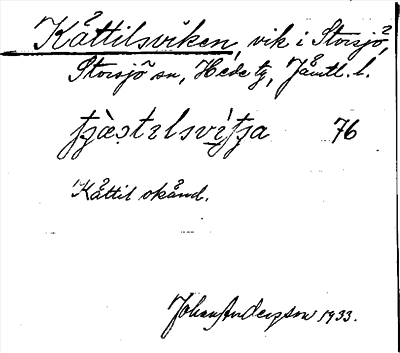 Kåttilsviken, vik i Storsjö,
Storsjö sn, Hede tg, Jämtl. l.
76
Kåttil okänd.
Johan Anderzon 1933.